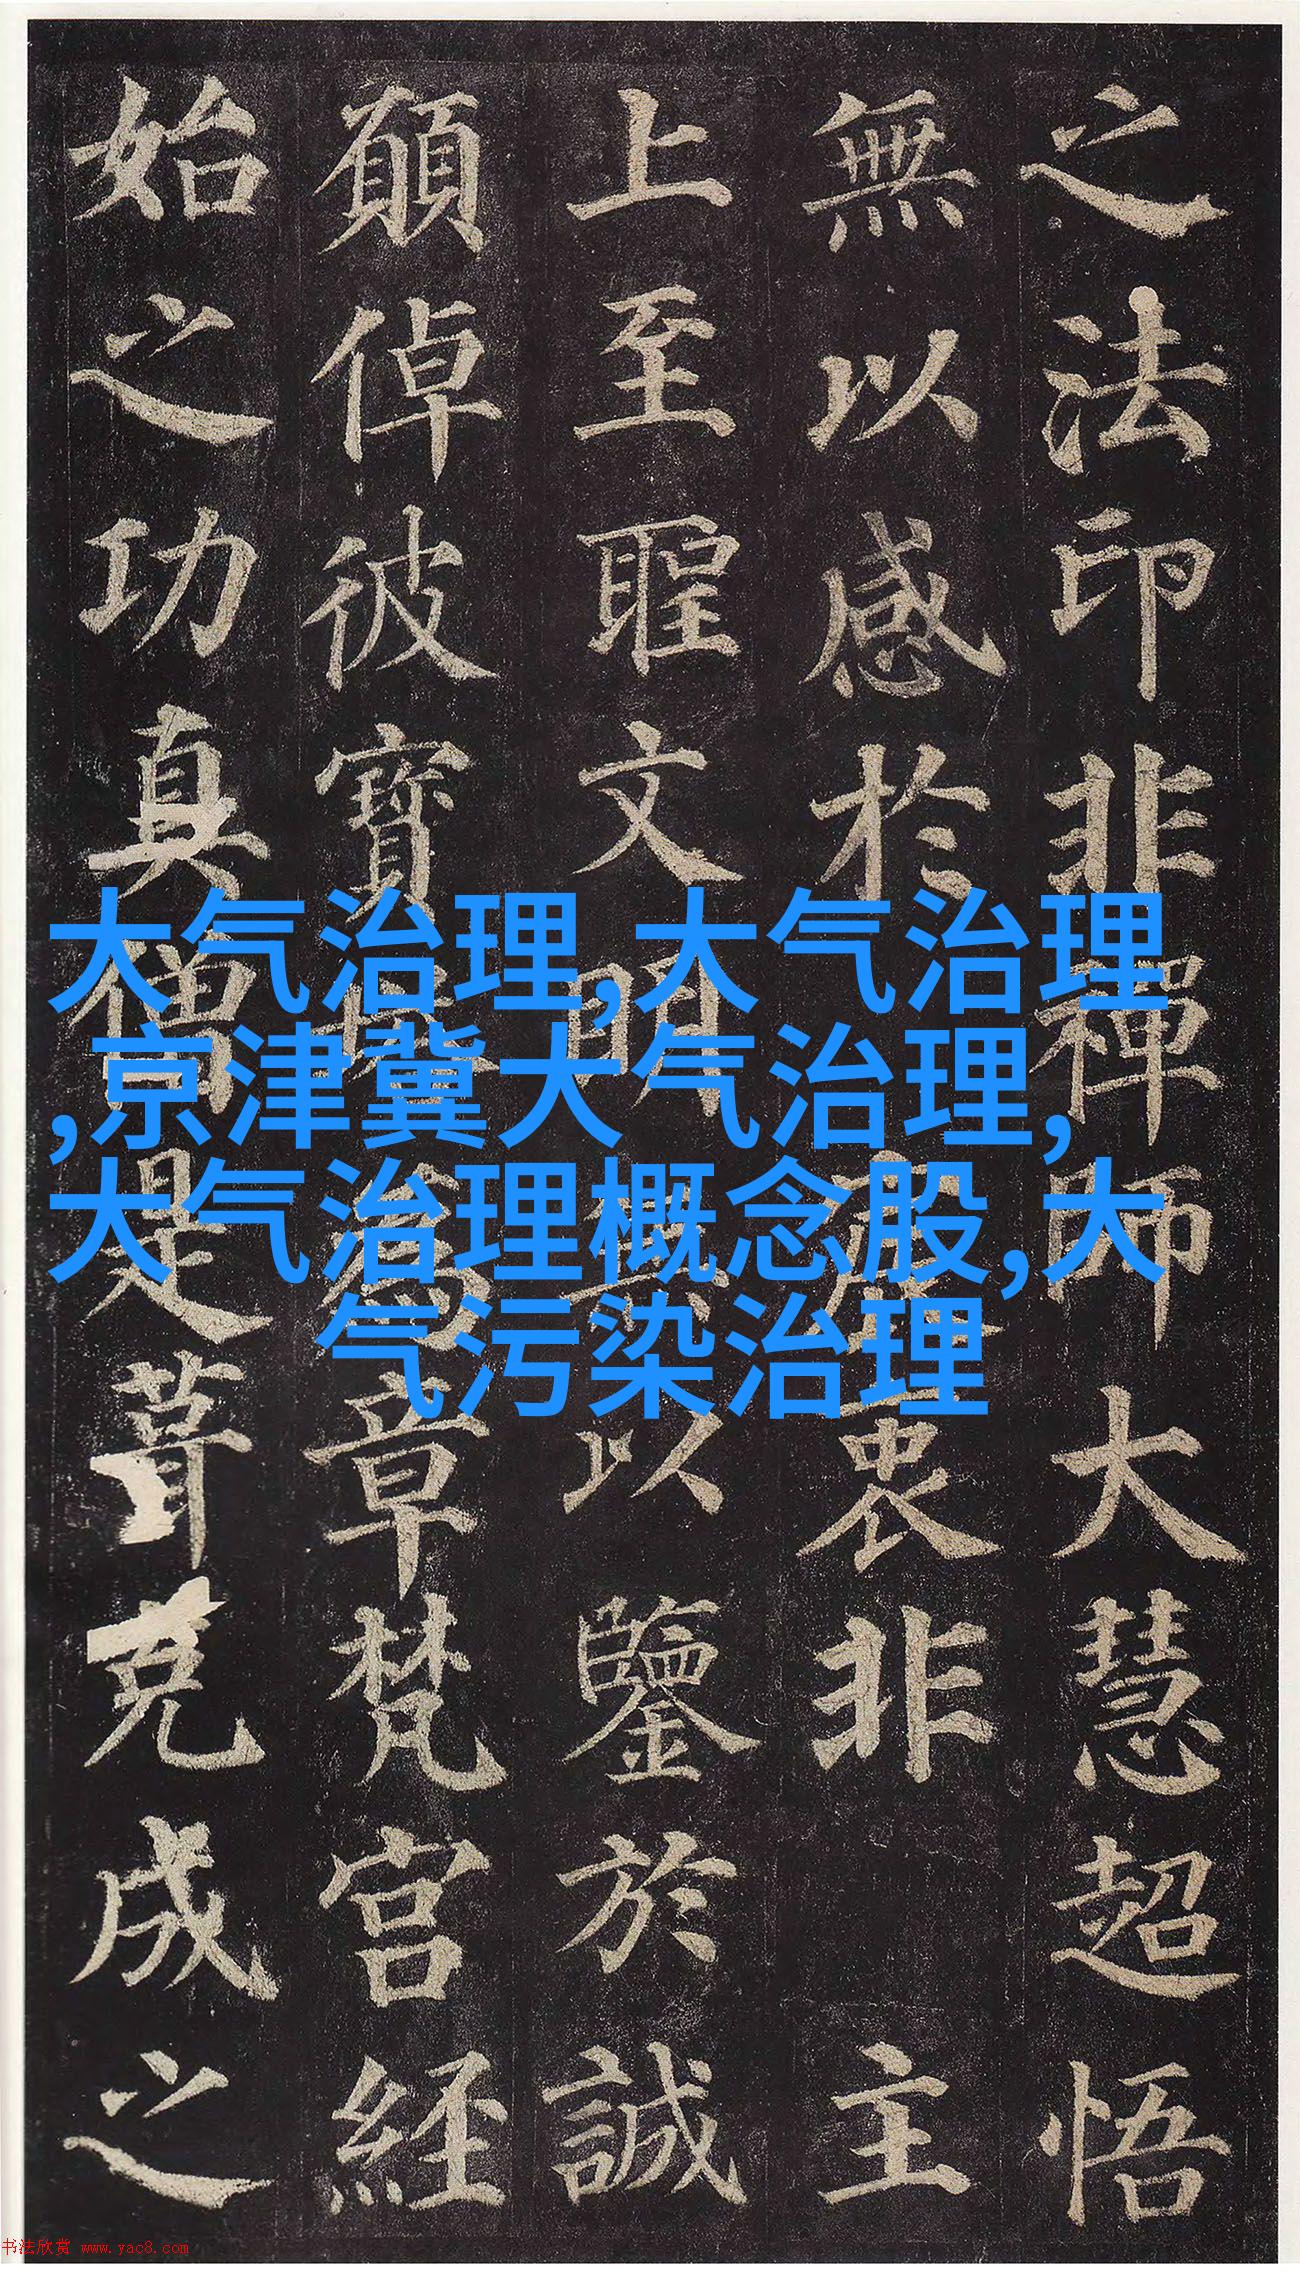 之法印非禪師大慧超悟
無以感於宸衷非主
上至聖文明無以鑒於誠
願倬彼寶塔為章梵宮經
始之功真僧是葺克成之
大气治理,大气治理
,京津冀大气治理,
大气治理概念股,大
气污染治理
书法欣赏 www.yac8.com